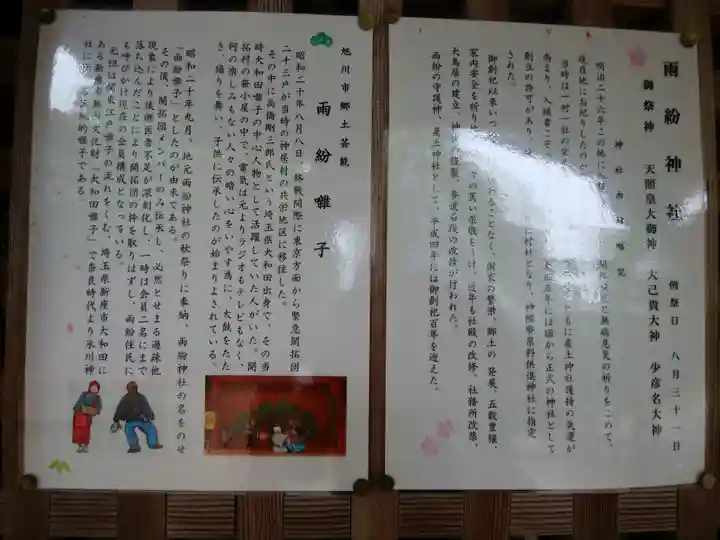 雨紛神社
御祭神 天照皇大御神 大己貴大神 少彦名大神
例祭日 八月三十一日
神社由緒略記
明治二十六年この地に入植
開拓の安全と無病息災の祈りをこめて、
現在地にお祀りしたのが
当時は一村一社の
ともに産土神社護持の気運が
高まり、入植者こぞ
大正五年には国から正式の神社として
創立の許可があり、
村社となり、神饌幣帛料供進神社に指定
された。
御創祀以来いつ
わることなく、国家の繁栄、郷土の発展、五穀豊穣、
家内安全を祈り
の篤い崇敬をうけ、近年も社殿の改修、社務所改築、
大鳥居の建立、神
調製、参道石段の改修が行われた。
雨紛の守護神、産土神社として、平成四年には御創祀百年を迎えた。
旭川市郷土芸能
雨紛囃子
昭和二十年八月八日、終戦間際に東京方面から緊急開拓団
二十三戸が当時の神居村の共栄地区に移住した。
その中に高橋剛三郎氏という埼玉県大和田出身で、その当
時大和田囃子の中心人物として活躍していた人がいた。開
拓村の笹小屋の中で、電気は元よりラジオもテレビもなく、
何の楽しみもない人々の暗い心をいやす為に、太鼓をたた
き、踊りを舞い、子供に伝承したのが始まりよされている。
昭和二十年九月、地元雨紛神社の秋祭りに奉納、雨紛神社の名をのせ
「雨紛囃子」としたのが由来である。
その後、開拓団メンバーのみ伝承し、必然とせまる過疎他
現象により後継者不足が深刻化し、一時は会員二名にまで
落ち込んだことにより開拓団の枠を取りはずし、雨紛住民に
も呼びかけ現在の会員構成となっている。
元祖は関東江戸囃子の流れをくむ、埼玉県新座市大和田に
ある
無形文化財、「大和田囃子」で奈良時代より氷川神
社に
伝統的囃子である。